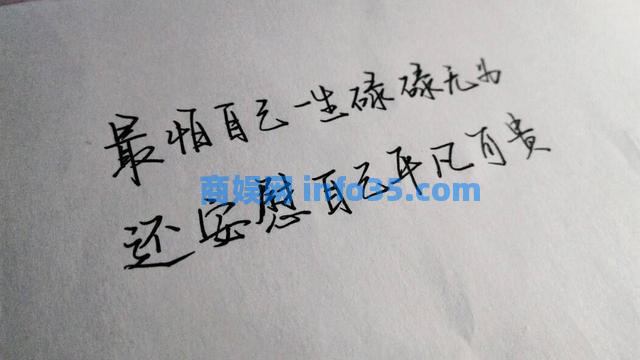 最怕自己一生碌碌无为
还安慰自己平凡可贵
商娱网 info35.com